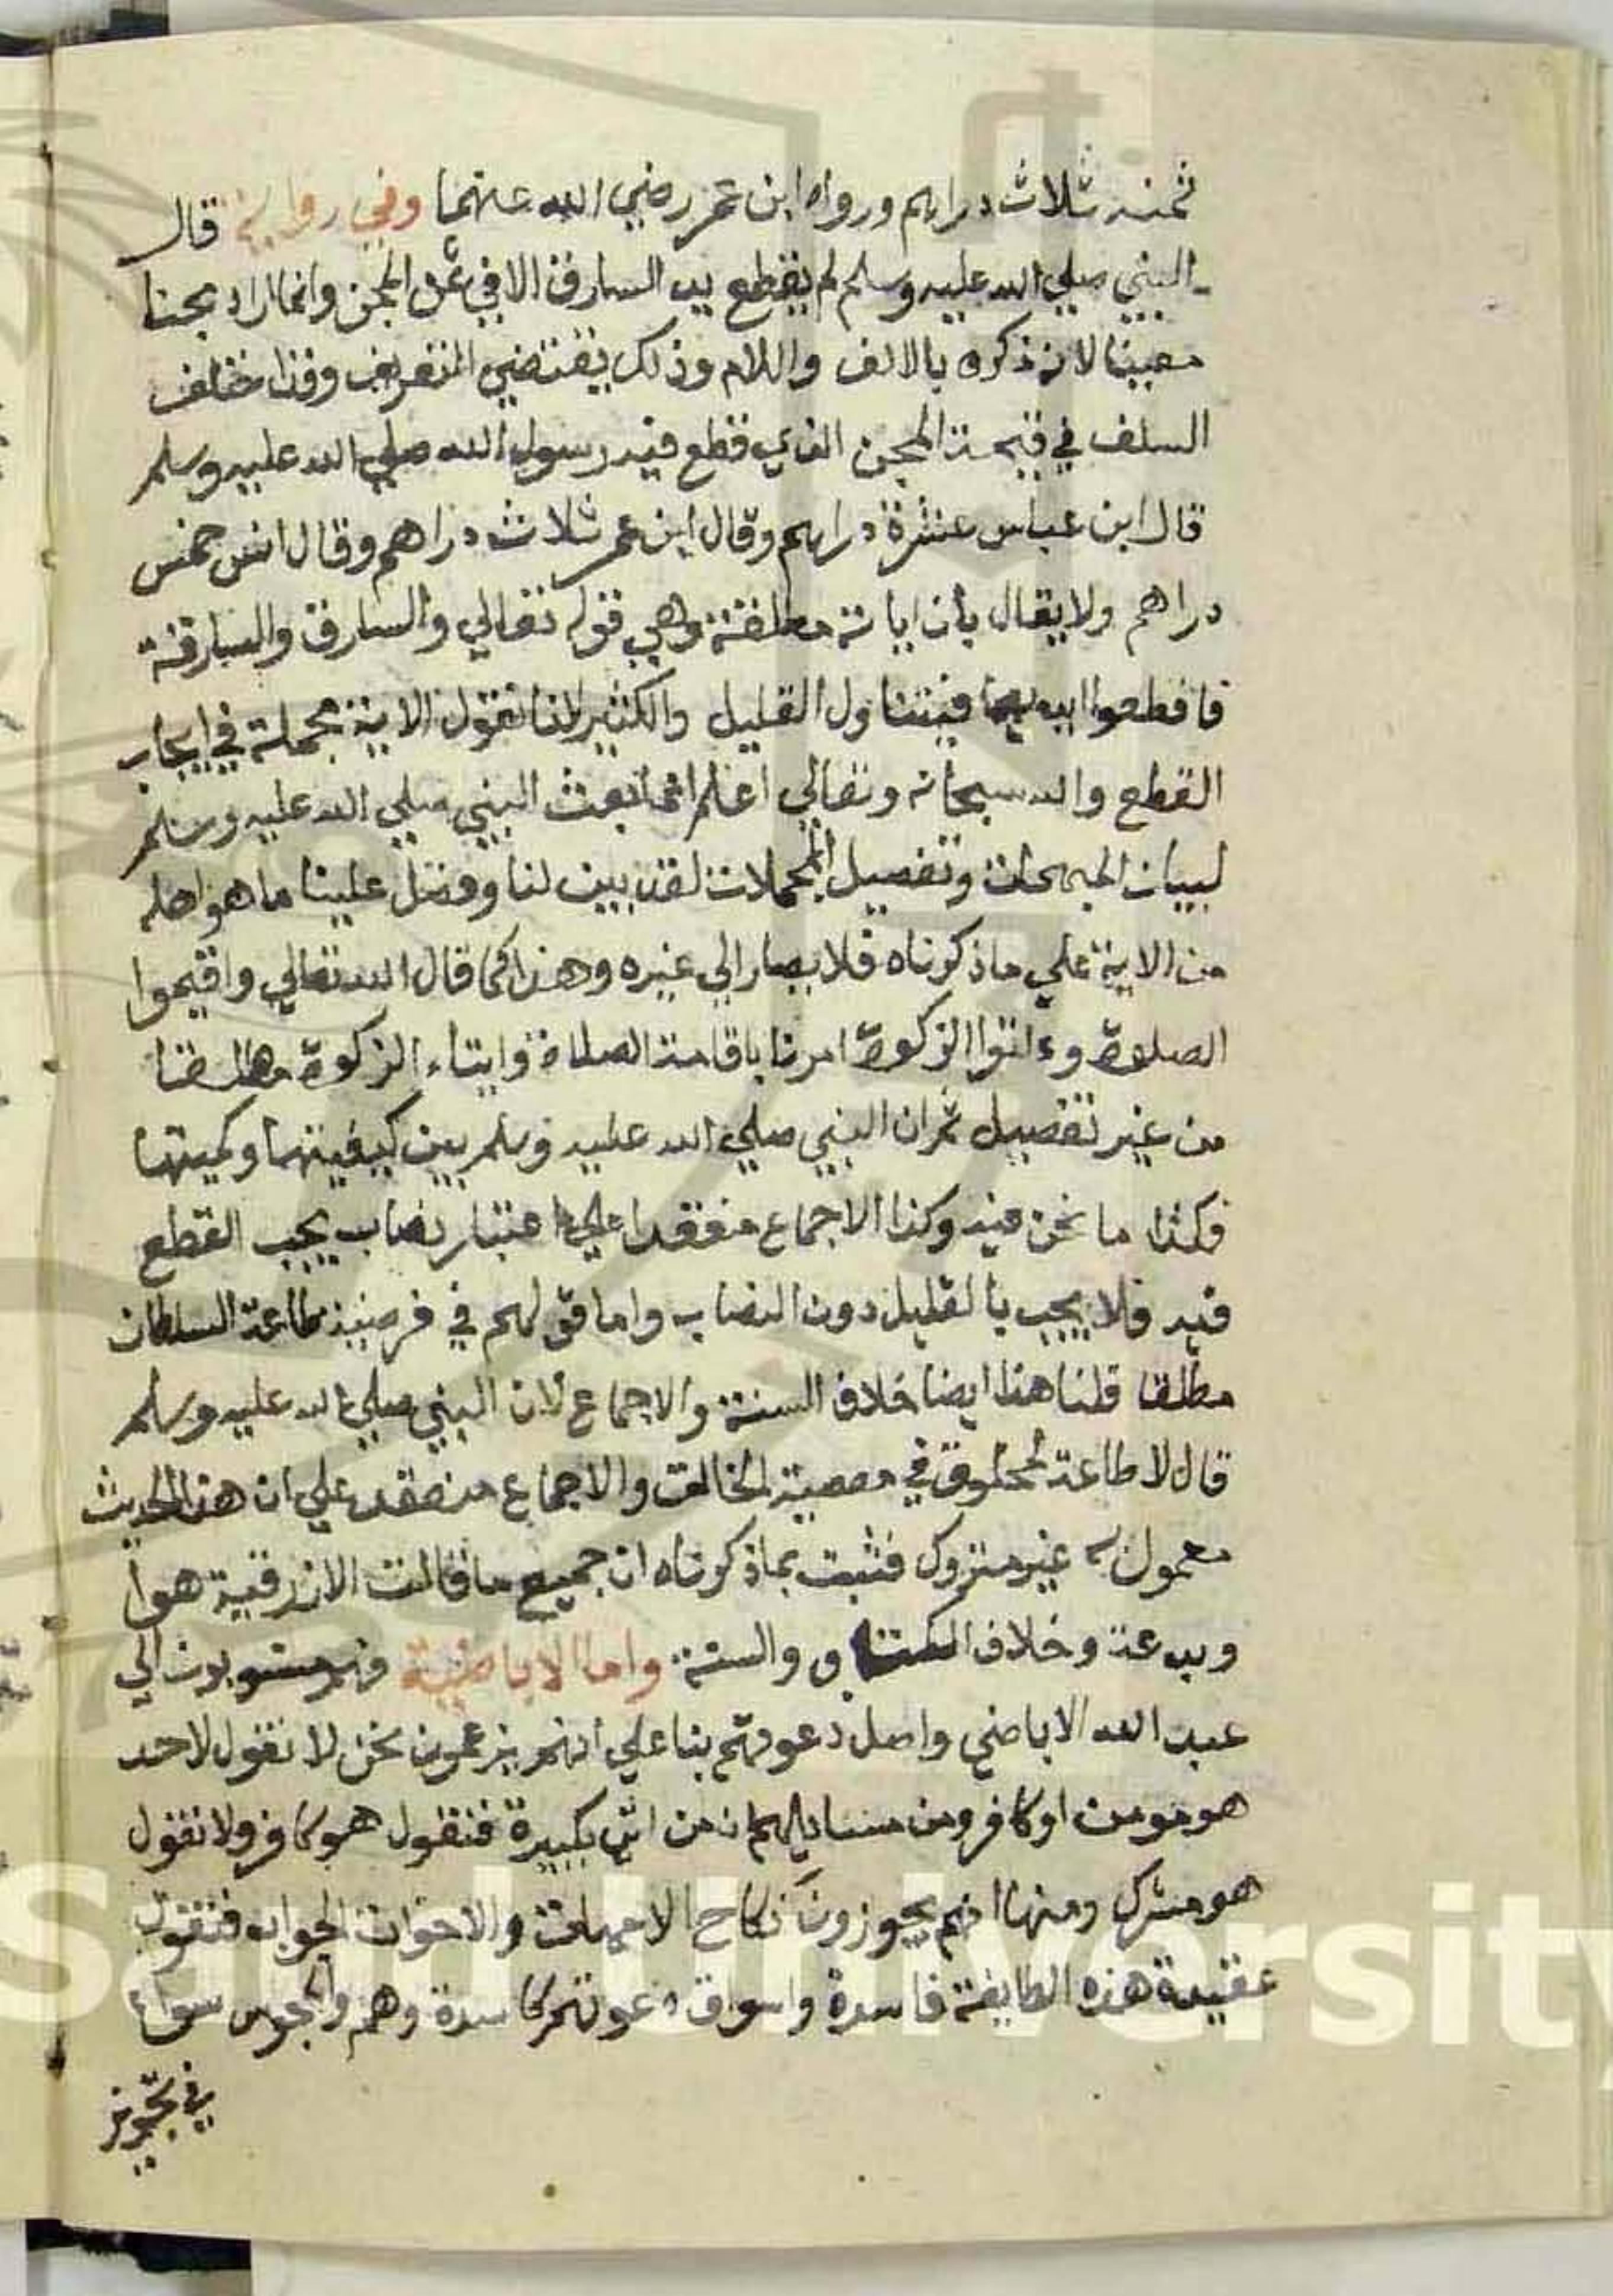 ثمنه ثلاث دراهم ورواه ابن عمر رضي الله عنهما وفي رواية قال
النبي صلي الله عليه وسلم لم يقطع يد السارق الا في ثمن المجن وانما اراد مجنا
معينا لانه ذكره بالالف واللام وذلك يقتضي التعريف وقد اختلف
السلف في قيمة المجن الذي قطع فيه رسول الله صلي الله عليه وسلم
قال ابن عباس عشرة دراهم وقال ابن عمر ثلاث دراهم وقال انس خمس
دراهم ولا يقال بأن اياته مطلقة وهي قوله تعالي والسارق والسارقة
فاقطعوا ايديهما فيتناول القليل والكثير لانا نقول الاية مجملة في ايجاب
القطع والله سبحانه وتعالي اعلم انما بعث النبي صلي الله عليه وسلم
لبيان المبهمات وتفصيل المجملات لقد بين لنا وفصل علينا ما هو اصله
من الاية علي ما ذكرناه فلا يصار الي غيره وهذا كما قال الله تعالي واقيموا
الصلوة وءاتوا الزكوة امرنا باقامة الصلاة وايتاء الزكوة مطلقا
من غير تفصيل ثم ان النبي صلي الله عليه وسلم بين كيفيتهما وكميتها
فكذا ما نحن فيه وكذا الاجماع منعقد علي اعتبار نصاب يجب القطع
فيه فلا يجب بالقليل دون النصاب واما قولهم في فرضية طاعة السلطان
مطلقا قلنا هذا ايضا خلاف السنة والاجماع لان النبي صلي الله عليه وسلم
قال لا طاعة لمخلوق في معصية الخالق والاجماع منعقد علي ان هذا الحديث
معمول به غير متروك فثبت بما ذكرناه ان جميع ما قالت الازرقية هوا
وبدعة وخلاف الكتاب والسنة واما الاباضية فهم منسوبون الي
عبد الله الاباضي واصل دعوتهم بنا علي انهم يزعمون نحن لا نقول لاحد
هو مومن او كافر ومن مسايلهم ان من اتي بكبيرة فنقول هو كافر ولا نقول
هو مشرك ومنها انهم يجوزون نكاح الامهات والاخوات الجواب فنقول
عقيدة هذه الطايفة فاسدة واسواق دعوتهم كاسدة وهم والمجوس سواء
في تجويز
Saud University